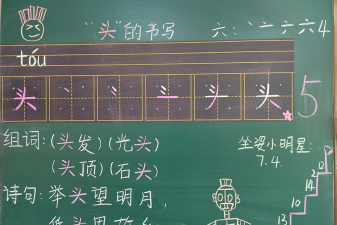 “头”的书写 六:丶亠亣六4
tóu
头 头 头 5
组词:(头发)(光头)
(头顶)(石头)
坐姿小明星:
7.4.
诗句:举头望明月,
12
14
10
13